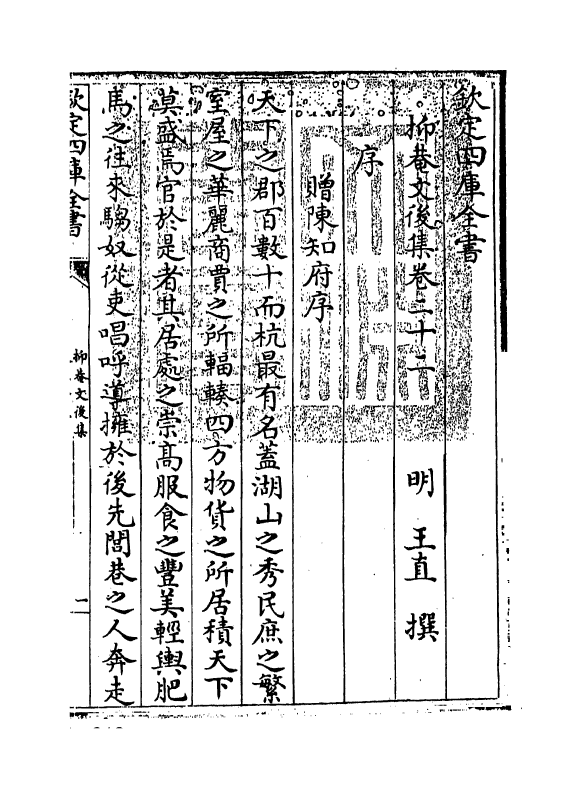 欽定四庫全書
抑菴文後集卷二十二
明 王直 撰
序
贈陳知府序
天下之郡百數十而杭最有名蓋湖山之秀民庶之繁
室屋之華麗商賈之所輻輳四方物貨之所居積天下
莫盛焉官於是者其居處之崇髙服食之豐美輕輿肥
馬之往來騶奴從吏唱呼導擁於後先閭巷之人奔走
欽定四庫全書
抑菴文後集
一